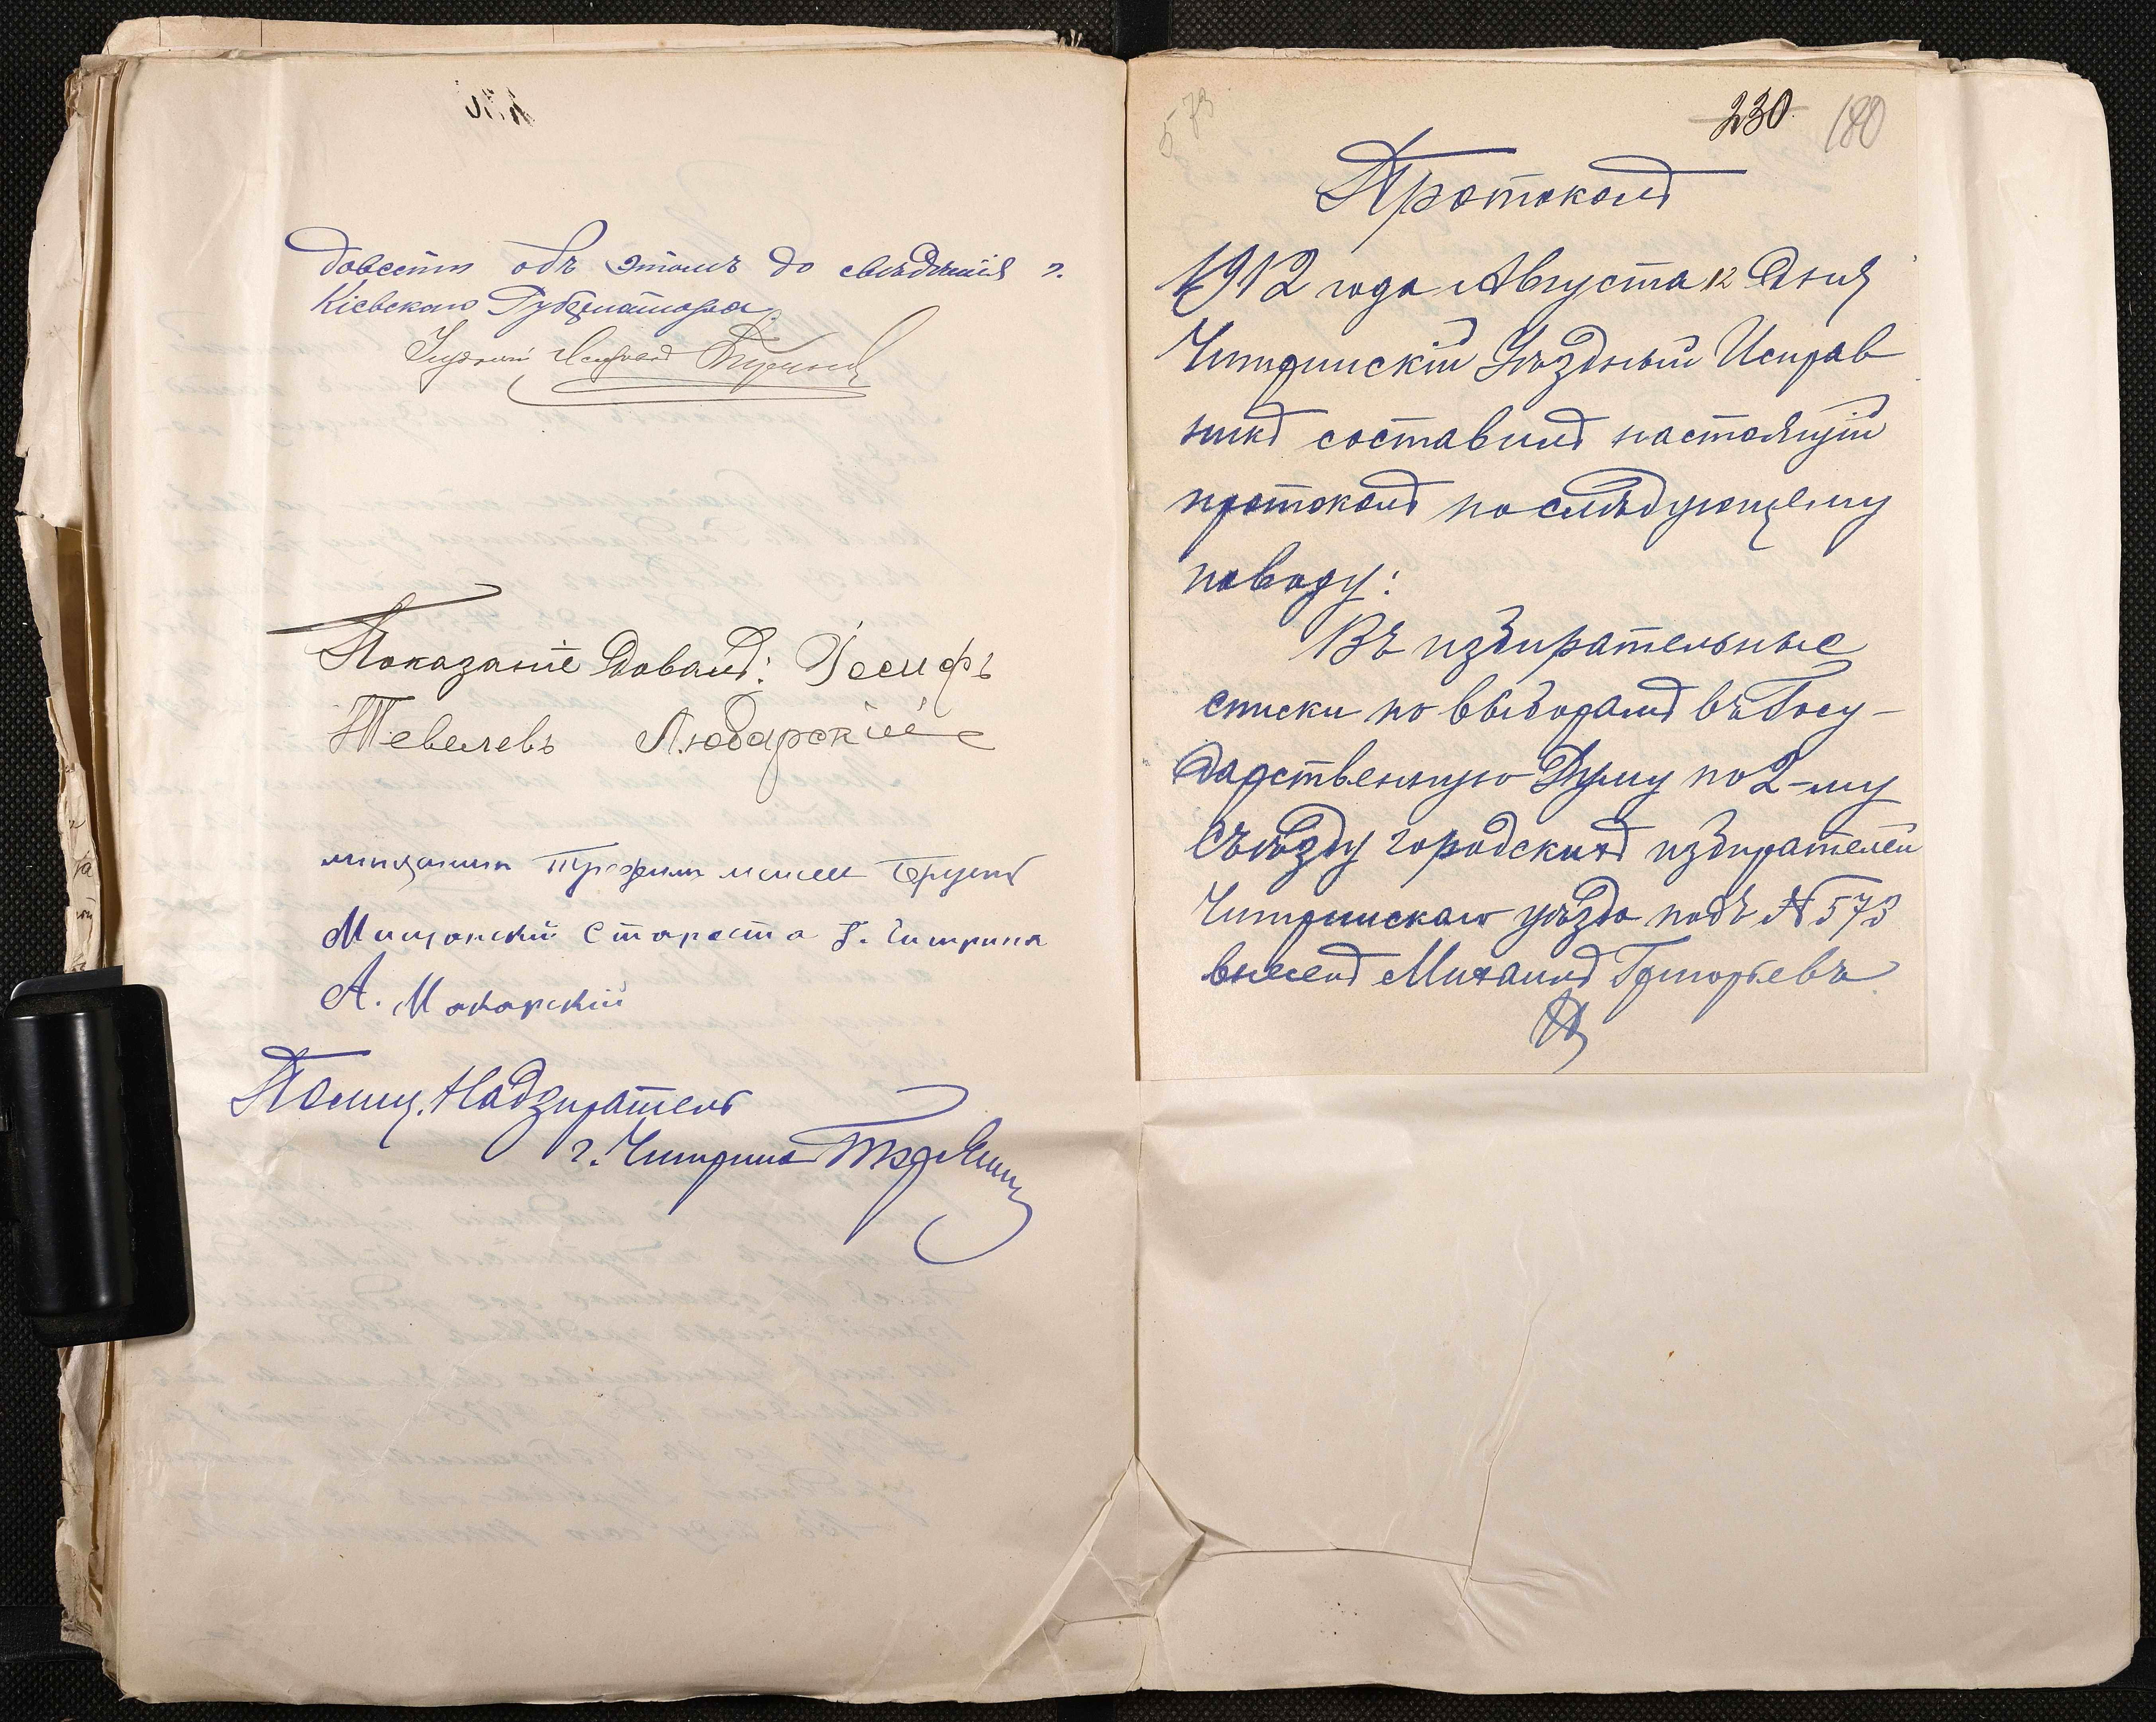 довести объ этомъ до свѣдѣнія г.
Кіевскаго Губернатора.
Уѣздный Исправникъ
Показаніе довалъ: Іосифъ
Тевелевъ Любарскій
мищанин
Мищанский Староста г. Чигирина
А. Макарский
Полиц. Надзиратель
г. Чигирина
573
230
180
Протоколъ
1912 года Августа 12 дня
Чигринскій Уѣздный Исправ
никъ составилъ настоящій
протоколъ по слѣдующему
поводу:
Въ избирательные
списки по выборамъ въ Госу-
дарственную Думу по 2-му
съѣзду городскихъ избирателей
Чигринскаго уѣзда подъ № 573
внесенъ Михаилъ Григорьевъ